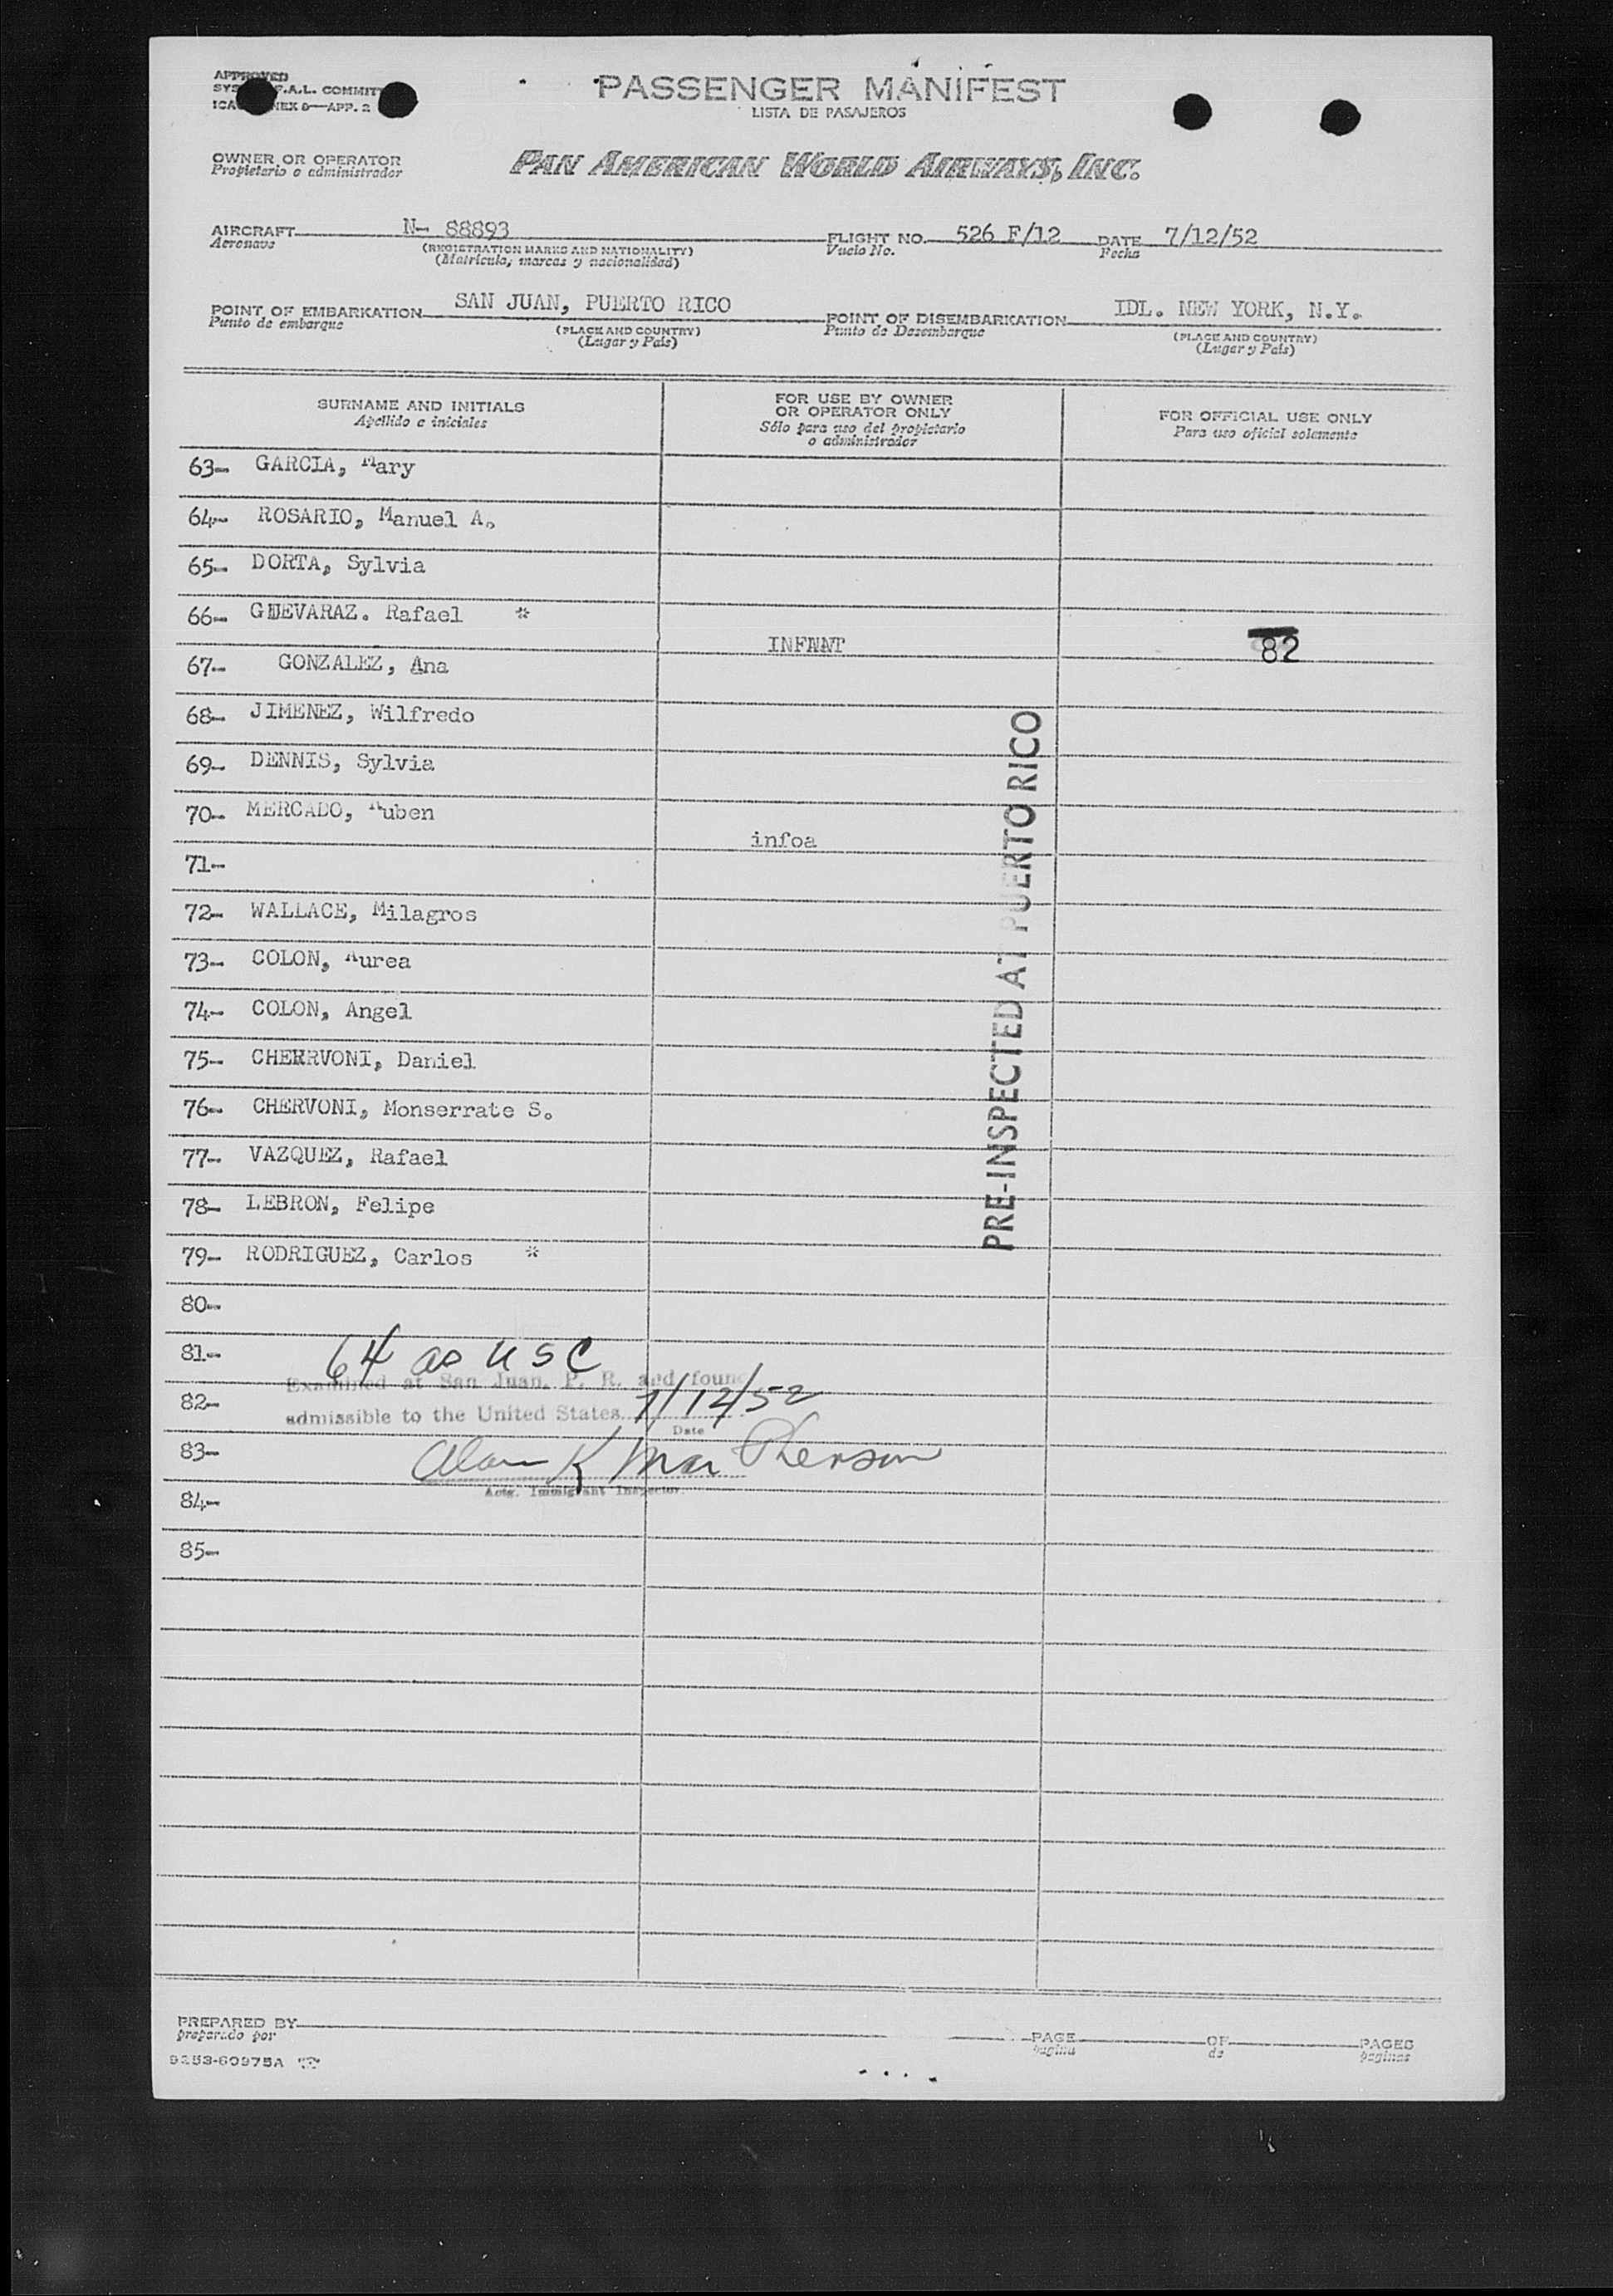 APPROVED
PASSENGER MANIFEST
F.A.L. COMMIT
LISTA DE PASAJEROS
APP. 2
OWNER OR OPERATOR
Propietario o administrador
PAN AMERICAN WORLD AIRWAYS, INC.
AIRCRAFT N- 88893 FLIGHT NO. 526 F/12 DATE 7/12/52
Aeronave (REGISTRATION MARKS AND NATIONALITY) Vuelo No. Fecha
(Matrícula, marcas y nacionalidad)
POINT OF EMBARKATION SAN JUAN, PUERTO RICO POINT OF DISEMBARKATION IDL. NEW YORK, N.Y.
Punto de embarque (PLACE AND COUNTRY) Punto de Desembarque (PLACE AND COUNTRY)
(Lugar y País) (Lugar y País)
SURNAME AND INITIALS FOR USE BY OWNER OR OPERATOR ONLY FOR OFFICIAL USE ONLY
Apellido e iniciales Sólo para uso del propietario o administrador Para uso oficial solamente
63- GARCIA, Mary
64- ROSARIO, Manuel A.
65- DORTA, Sylvia
66- GUEVARAZ. Rafael *
INFANT 82
67- GONZALEZ, Ana
68- JIMENEZ, Wilfredo
69- DENNIS, Sylvia
70- MERCADO, Ruben
infoa
71-
72- WALLACE, Milagros
73- COLON, Aurea
74- COLON, Angel
75- CHERRVONI, Daniel
76- CHERVONI, Monserrate S.
77- VAZQUEZ, Rafael
78- LEBRON, Felipe
79- RODRIGUEZ, Carlos *
PRE-INSPECTED AT PUERTO RICO
80-
81- 64 as USC
Examined at San Juan, P. R. and found
82- admissible to the United States 7/12/52
Date
83- Alan K MacPherson
Actg. Immigrant Inspector
84-
85-
PREPARED BY PAGE OF PAGES
preparado por página de páginas
9253-60975A